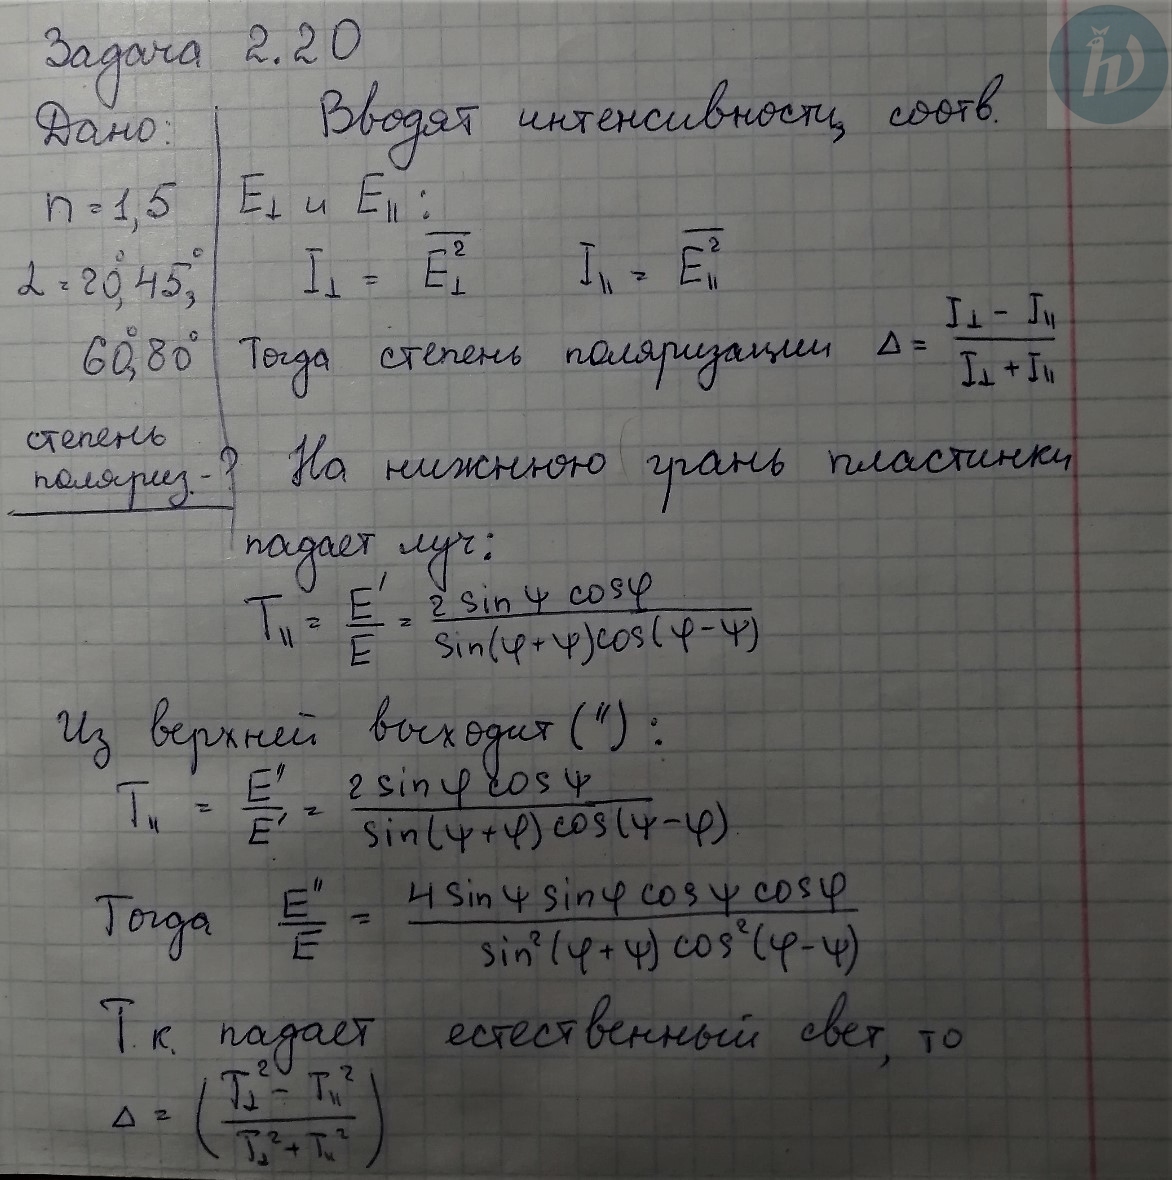 Задача 2.20
Дано:
n = 1,5
α = 20°, 45°,
60°, 80°
степень
поляриз. - ?
Вводят интенсивности, соотв.
E⊥ и E∥:
I⊥ = \overline{E⊥²}   I∥ = \overline{E∥²}
Тогда степень поляризации Δ = (I⊥ - I∥)/(I⊥ + I∥)
На нижнюю грань пластинки
падает луч:
T∥ = E'/E = 2 sin ψ cos φ / (sin(φ+ψ) cos(φ-ψ))
Из верхней выходит ("):
T∥ = E''/E' = 2 sin φ cos ψ / (sin(ψ+φ) cos(ψ-φ))
Тогда E''/E = 4 sin ψ sin φ cos ψ cos φ / (sin²(φ+ψ) cos²(φ-ψ))
Т.к. падает естественный свет, то
Δ = ((T⊥² - T∥²)/(T⊥² + T∥²))